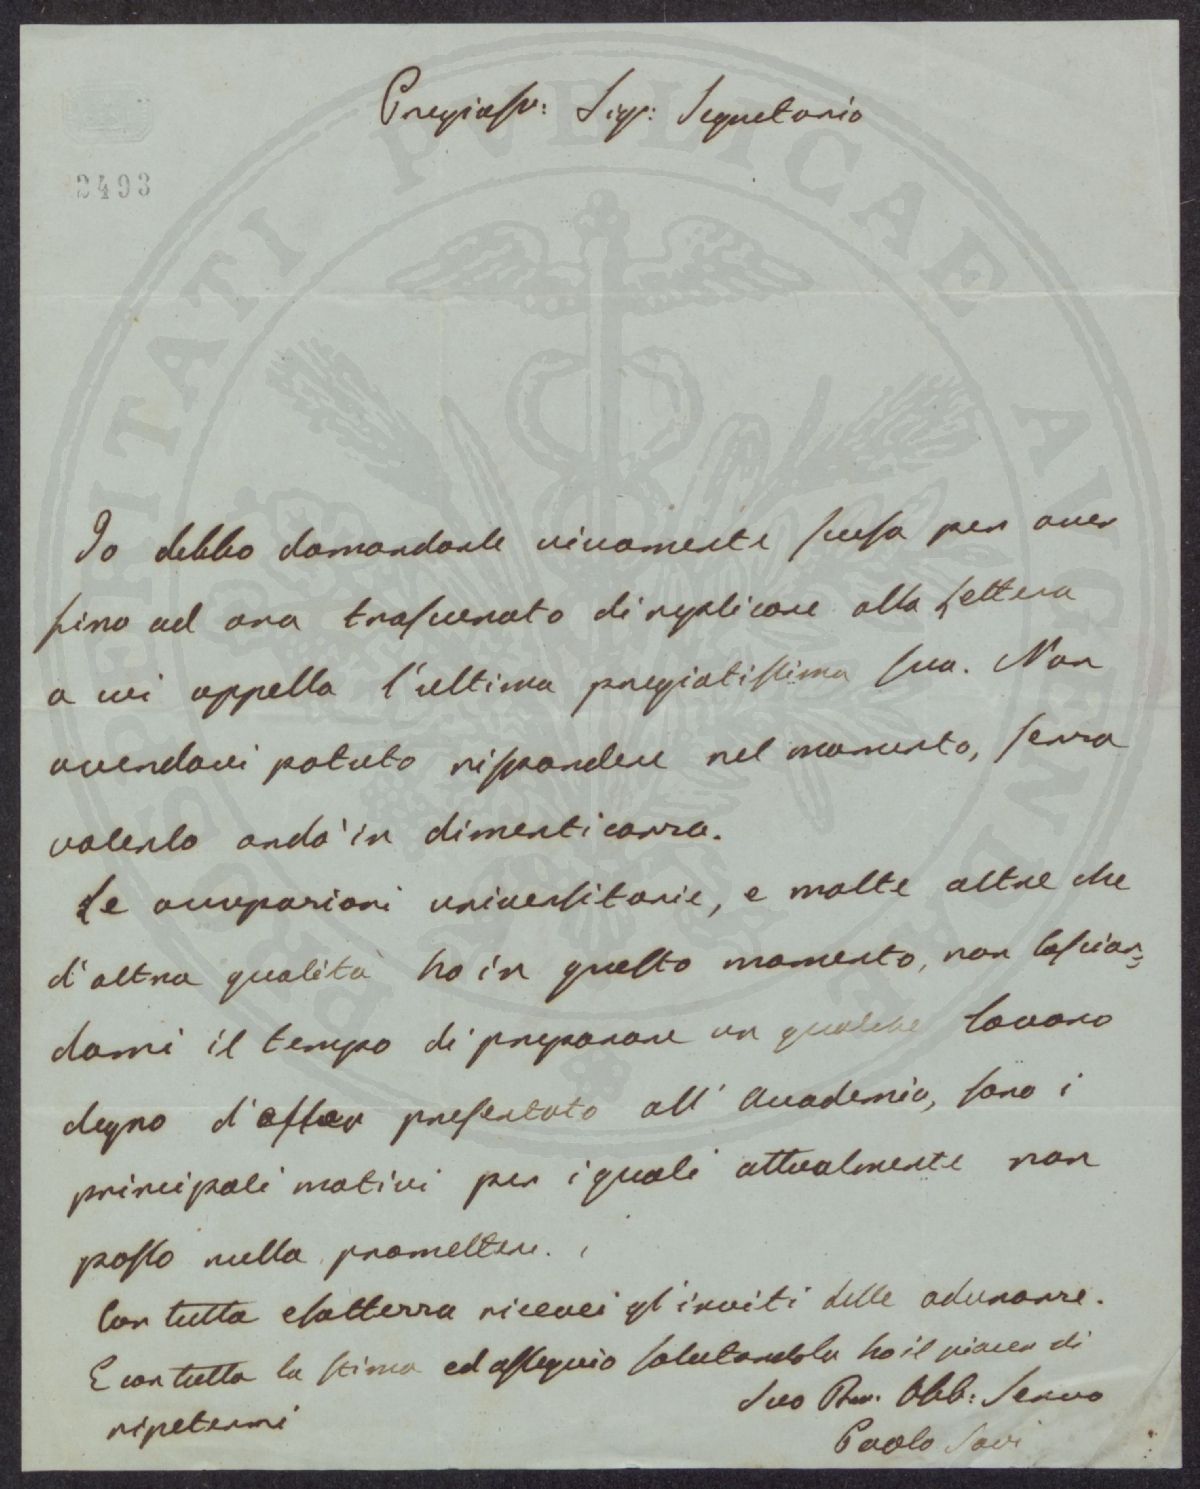 Pregiass: Sigr: Segretario
2493
Io debbo domandarle vivamente scusa per aver
fino ad ora trascurato di replicare alla Lettera
a cui appella l'ultima pregiatissima sua. Non
avendovi potuto rispondere nel momento, senza
volerlo andò in dimenticanza.
Le occupazioni universitarie, e molte altre che
d'altra qualità ho in questo momento, non lascian=
domi il tempo di preparare un qualche lavoro
degno d'esser presentato all'Accademia, sono i
principali motivi per i quali attualmente non
posso nulla promettere.
Con tutta esattezza ricevei gl'inviti delle adunanze.
E con tutta la stima ed ossequio salutandola ho il piacer di
ripetermi
Suo Obb: Servo
Paolo Savi
PROSPERITATI PVBLICAE AVGENDAE